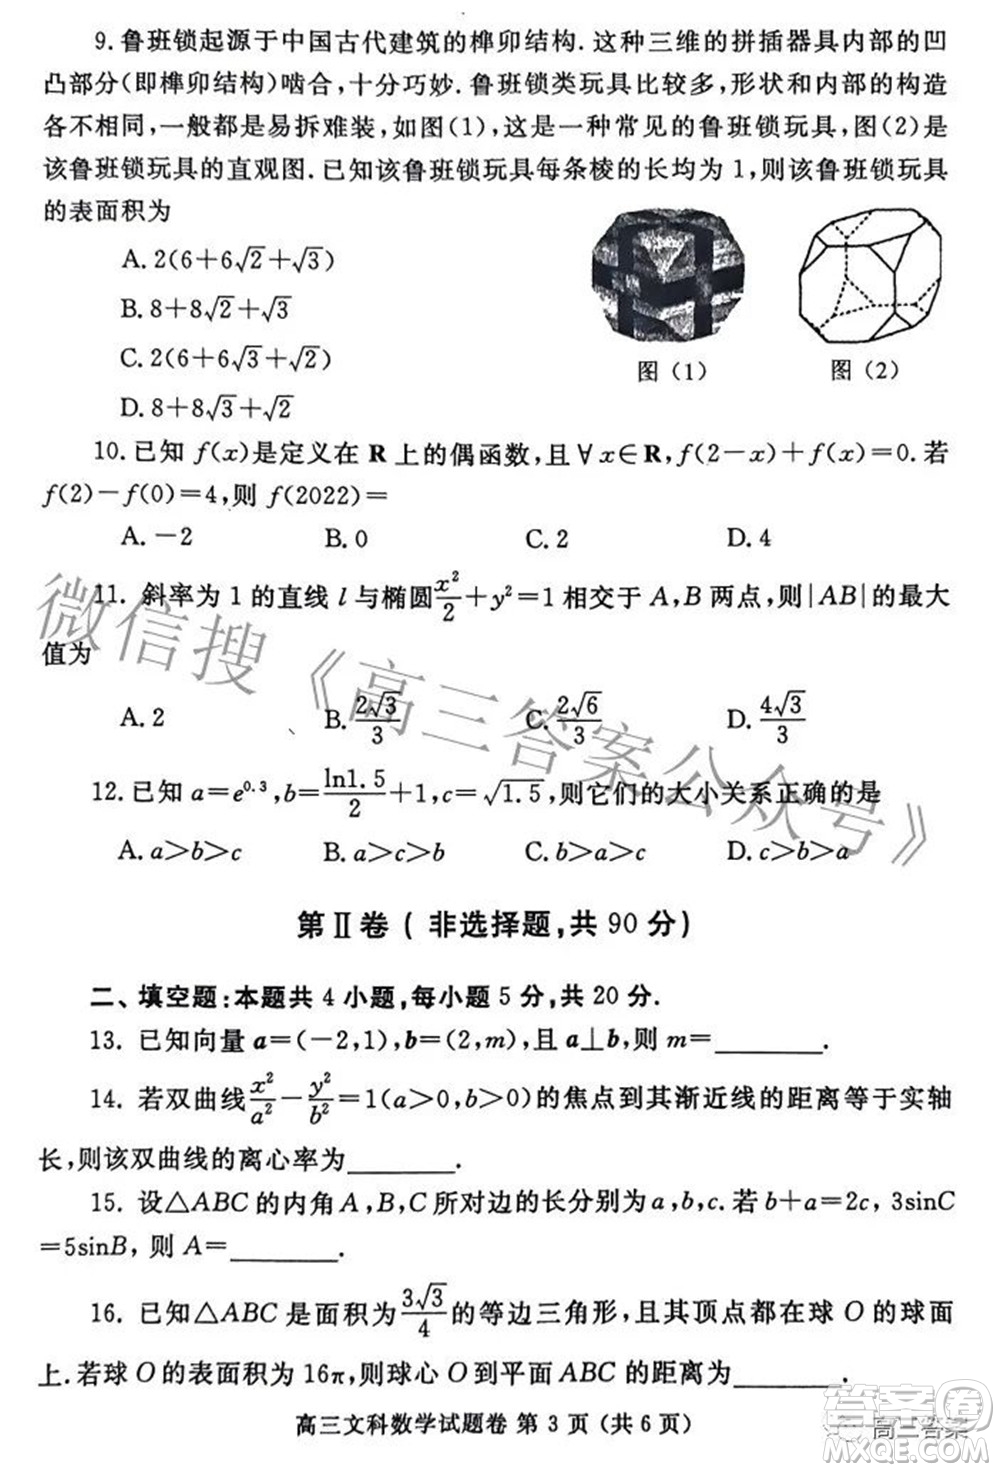 9.鲁班锁起源于中国古代建筑的榫卯结构.这种三维的拼插器具内部的凹
凸部分(即榫卯结构)啮合,十分巧妙.鲁班锁类玩具比较多,形状和内部的构造
各不相同,一般都是易拆难装,如图(1),这是一种常见的鲁班锁玩具,图(2)是
该鲁班锁玩具的直观图.已知该鲁班锁玩具每条棱的长均为1,则该鲁班锁玩具
的表面积为
A.2(6+6√2+√3)
B.8+8√2+√3
C.2(6+6√3+√2)
D.8+8√3+√2
图(1) 图(2)
10.已知 f(x)是定义在 R 上的偶函数,且∀x∈R,f(2-x)+f(x)=0.若
f(2)-f(0)=4,则 f(2022)=
A.-2 B.0 C.2 D.4
11. 斜率为1的直线 l 与椭圆x²/2+y²=1相交于A,B两点,则|AB|的最大
值为
A.2 B.2√3/3 C.2√6/3 D.4√3/3
12.已知 a=e^0.3,b=ln1.5/2+1,c=√1.5,则它们的大小关系正确的是
A.a>b>c B.a>c>b C.b>a>c D.c>b>a
第Ⅱ卷(非选择题,共90分)
二、填空题:本题共4小题,每小题5分,共20分.
13. 已知向量 a=(-2,1),b=(2,m),且 a⊥b,则 m=______.
14. 若双曲线x²/a²-y²/b²=1(a>0,b>0)的焦点到其渐近线的距离等于实轴
长,则该双曲线的离心率为______.
15. 设△ABC的内角A,B,C所对边的长分别为a,b,c.若 b+a=2c, 3sinC
=5sinB, 则 A=______.
16. 已知△ABC是面积为3√3/4的等边三角形,且其顶点都在球O的球面
上.若球O的表面积为16π,则球心O到平面ABC的距离为______.
高三文科数学试题卷 第3页(共6页)
微信搜《高三答案公众号》
高三答案
答案圈
MXQE.COM